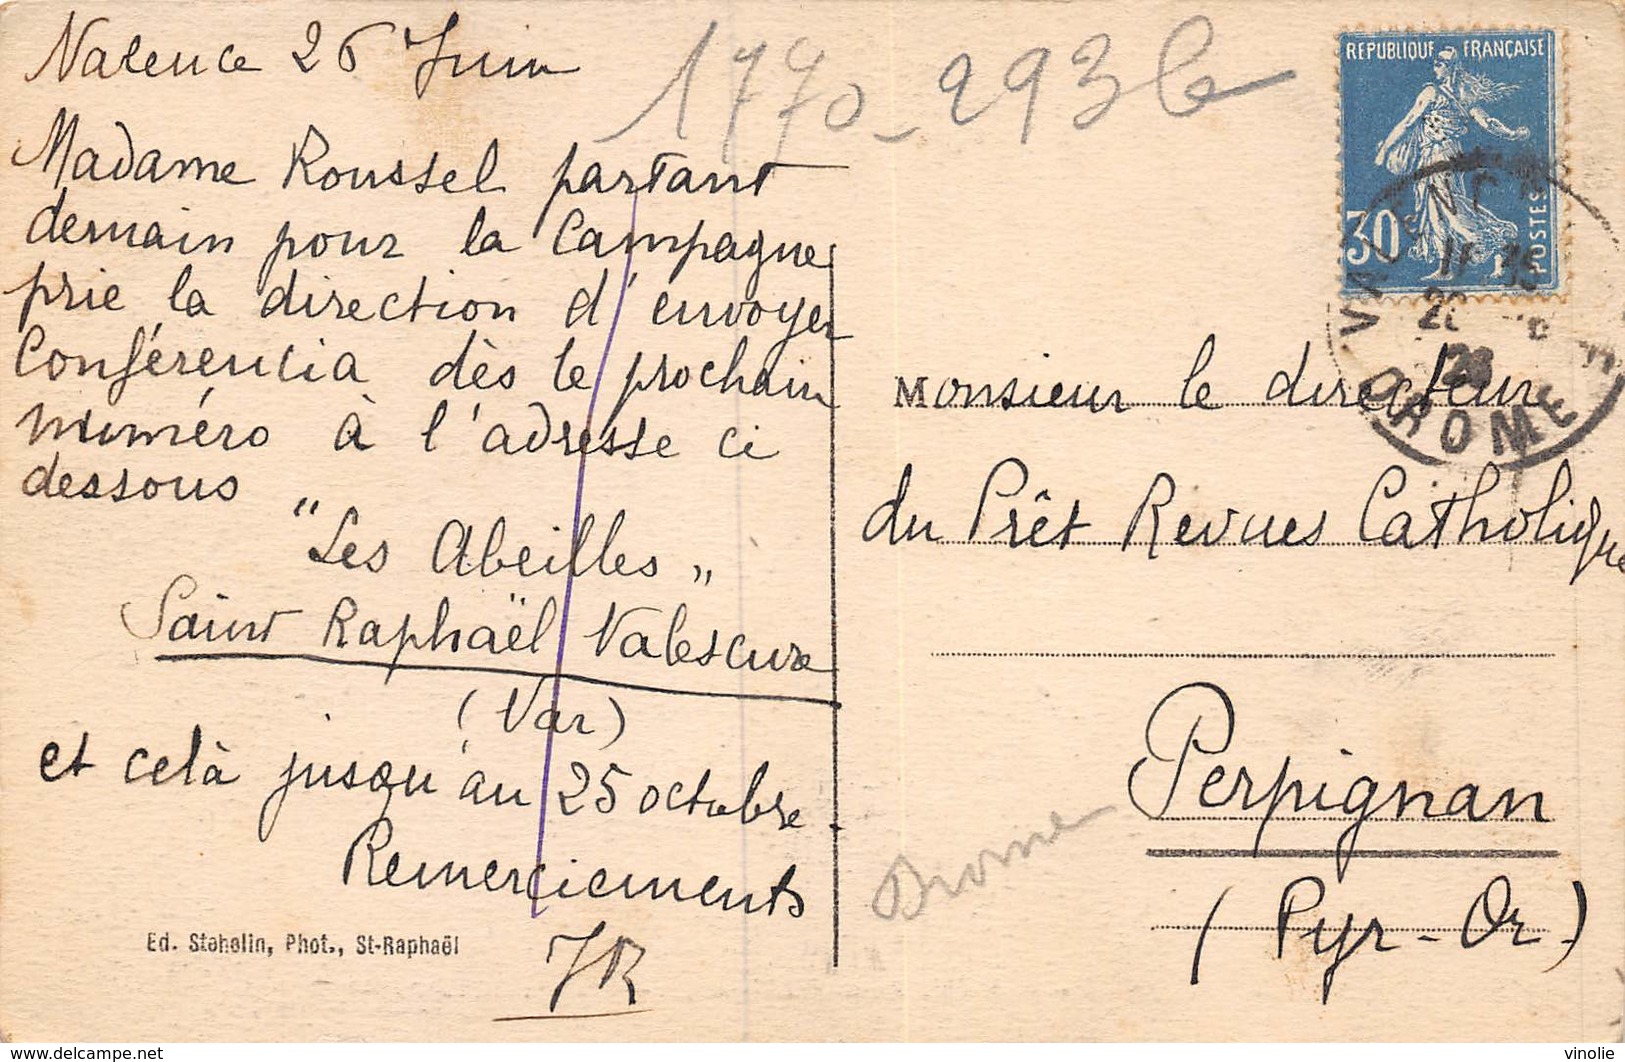 Valence 26 Juin
1770_293b
Madame Roussel partant
demain pour la Campagne
prie la direction d'envoyer
Conférencia dès le prochain
numéro à l'adresse ci
dessous
"Les Abeilles"
Saint Raphaël Valescure
(Var)
et celà jusqu'au 25 octobre.
Remerciements
JR
Ed. Stehelin, Phot., St-Raphaël
REPUBLIQUE FRANÇAISE
30
POSTES
VALENCE
DROME
Monsieur le directeur
du Prêt Revues Catholique
Perpignan
(Pyr-Or)
Drome
delcampe.net
vinolie